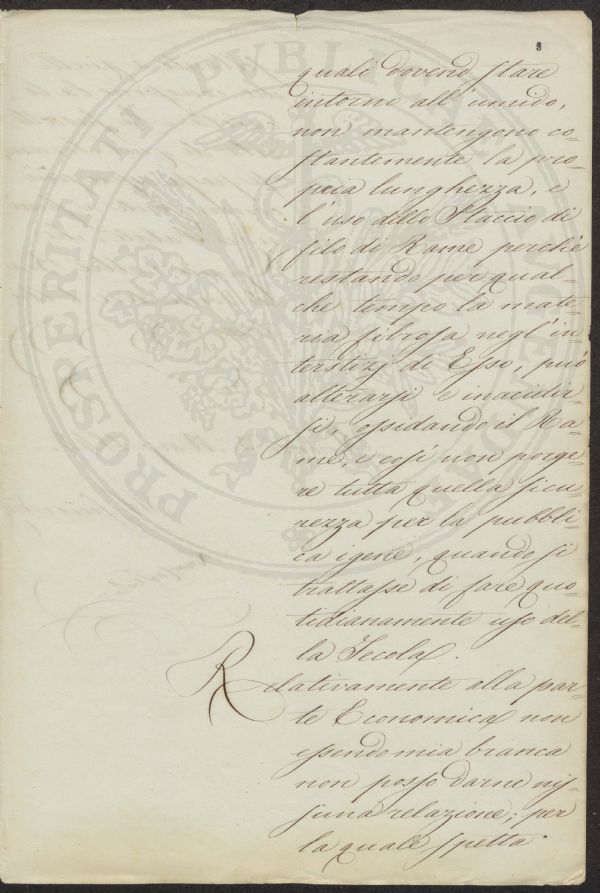 8
quali dovend stare
intorno all'umido,
non mantengono co=
stantemente la pro=
pria lunghezza, e
l'uso dello Staccio di
filo di Rame perchè
restando per qual=
che tempo la mate=
ria fibrosa negl'in=
terstizj di Esso, può
alterarsi e inacidir=
si, ossidando il Ra=
me, e così non porge=
re tutta quella sicu=
rezza per la pubbli=
ca igene, quando si
trattasse di fare quo=
tidianamente uso del=
la Fecola.
Relativamente alla par=
te Economica non
essendo mia branca
non posso darne nis=
suna relazione; per
la quale spetta
PROSPERITATI PVBLICAE AVGENDAE